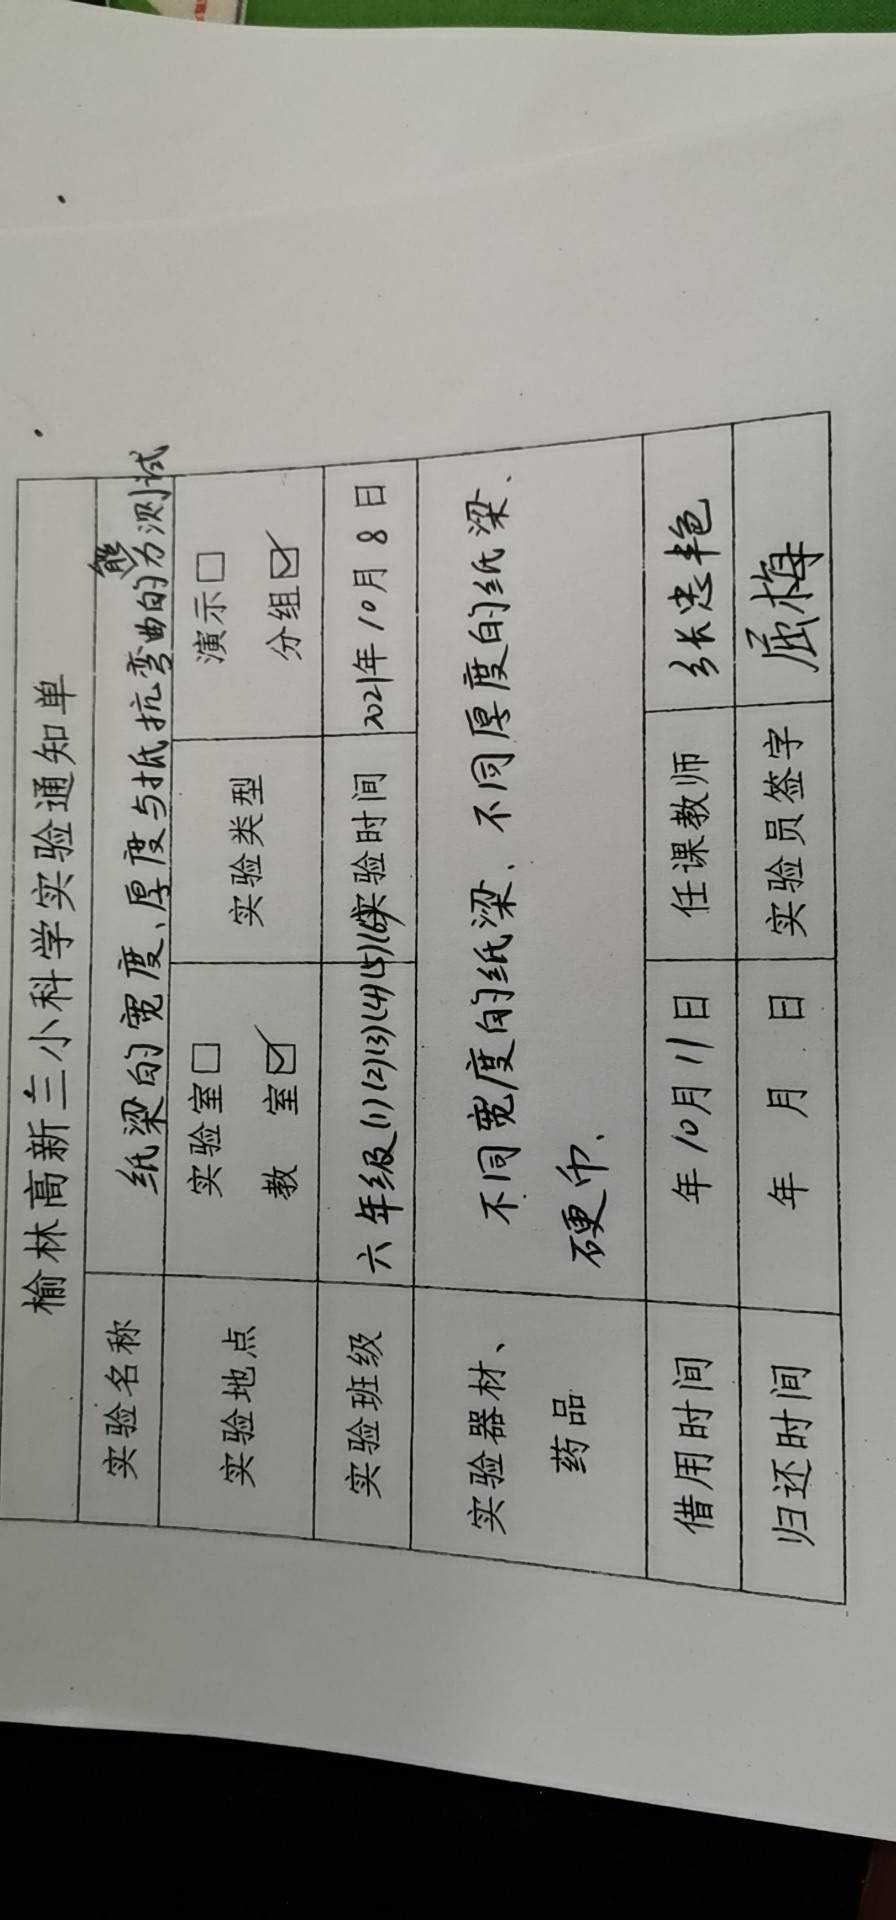 榆林高新三小科学实验通知单
实验名称 纸梁的宽度、厚度与抵抗弯曲的能力测试
实验地点 实验室□ 教室☑ 实验类型 演示□ 分组☑
实验班级 六年级(1)(2)(3)(4)(5)(6) 实验时间 2021年10月8日
实验器材、药品 不同宽度的纸梁、不同厚度的纸梁、
硬币、
借用时间 年10月11日 任课教师 张忠艳
归还时间 年 月 日 实验员签字 屈梅